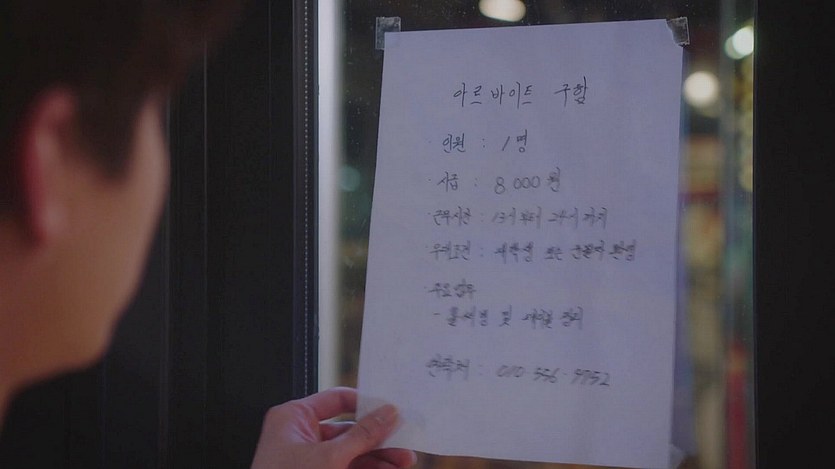 아르바이트 구함
· 인원 : 1명
· 시급 : 8000원
· 근무시간 : 13시부터 24시까지
· 우대조건 : 대학생 또는 운동자 환영
· 주요업무
- 및 테이블 정리
연락처 : 010-556-9752